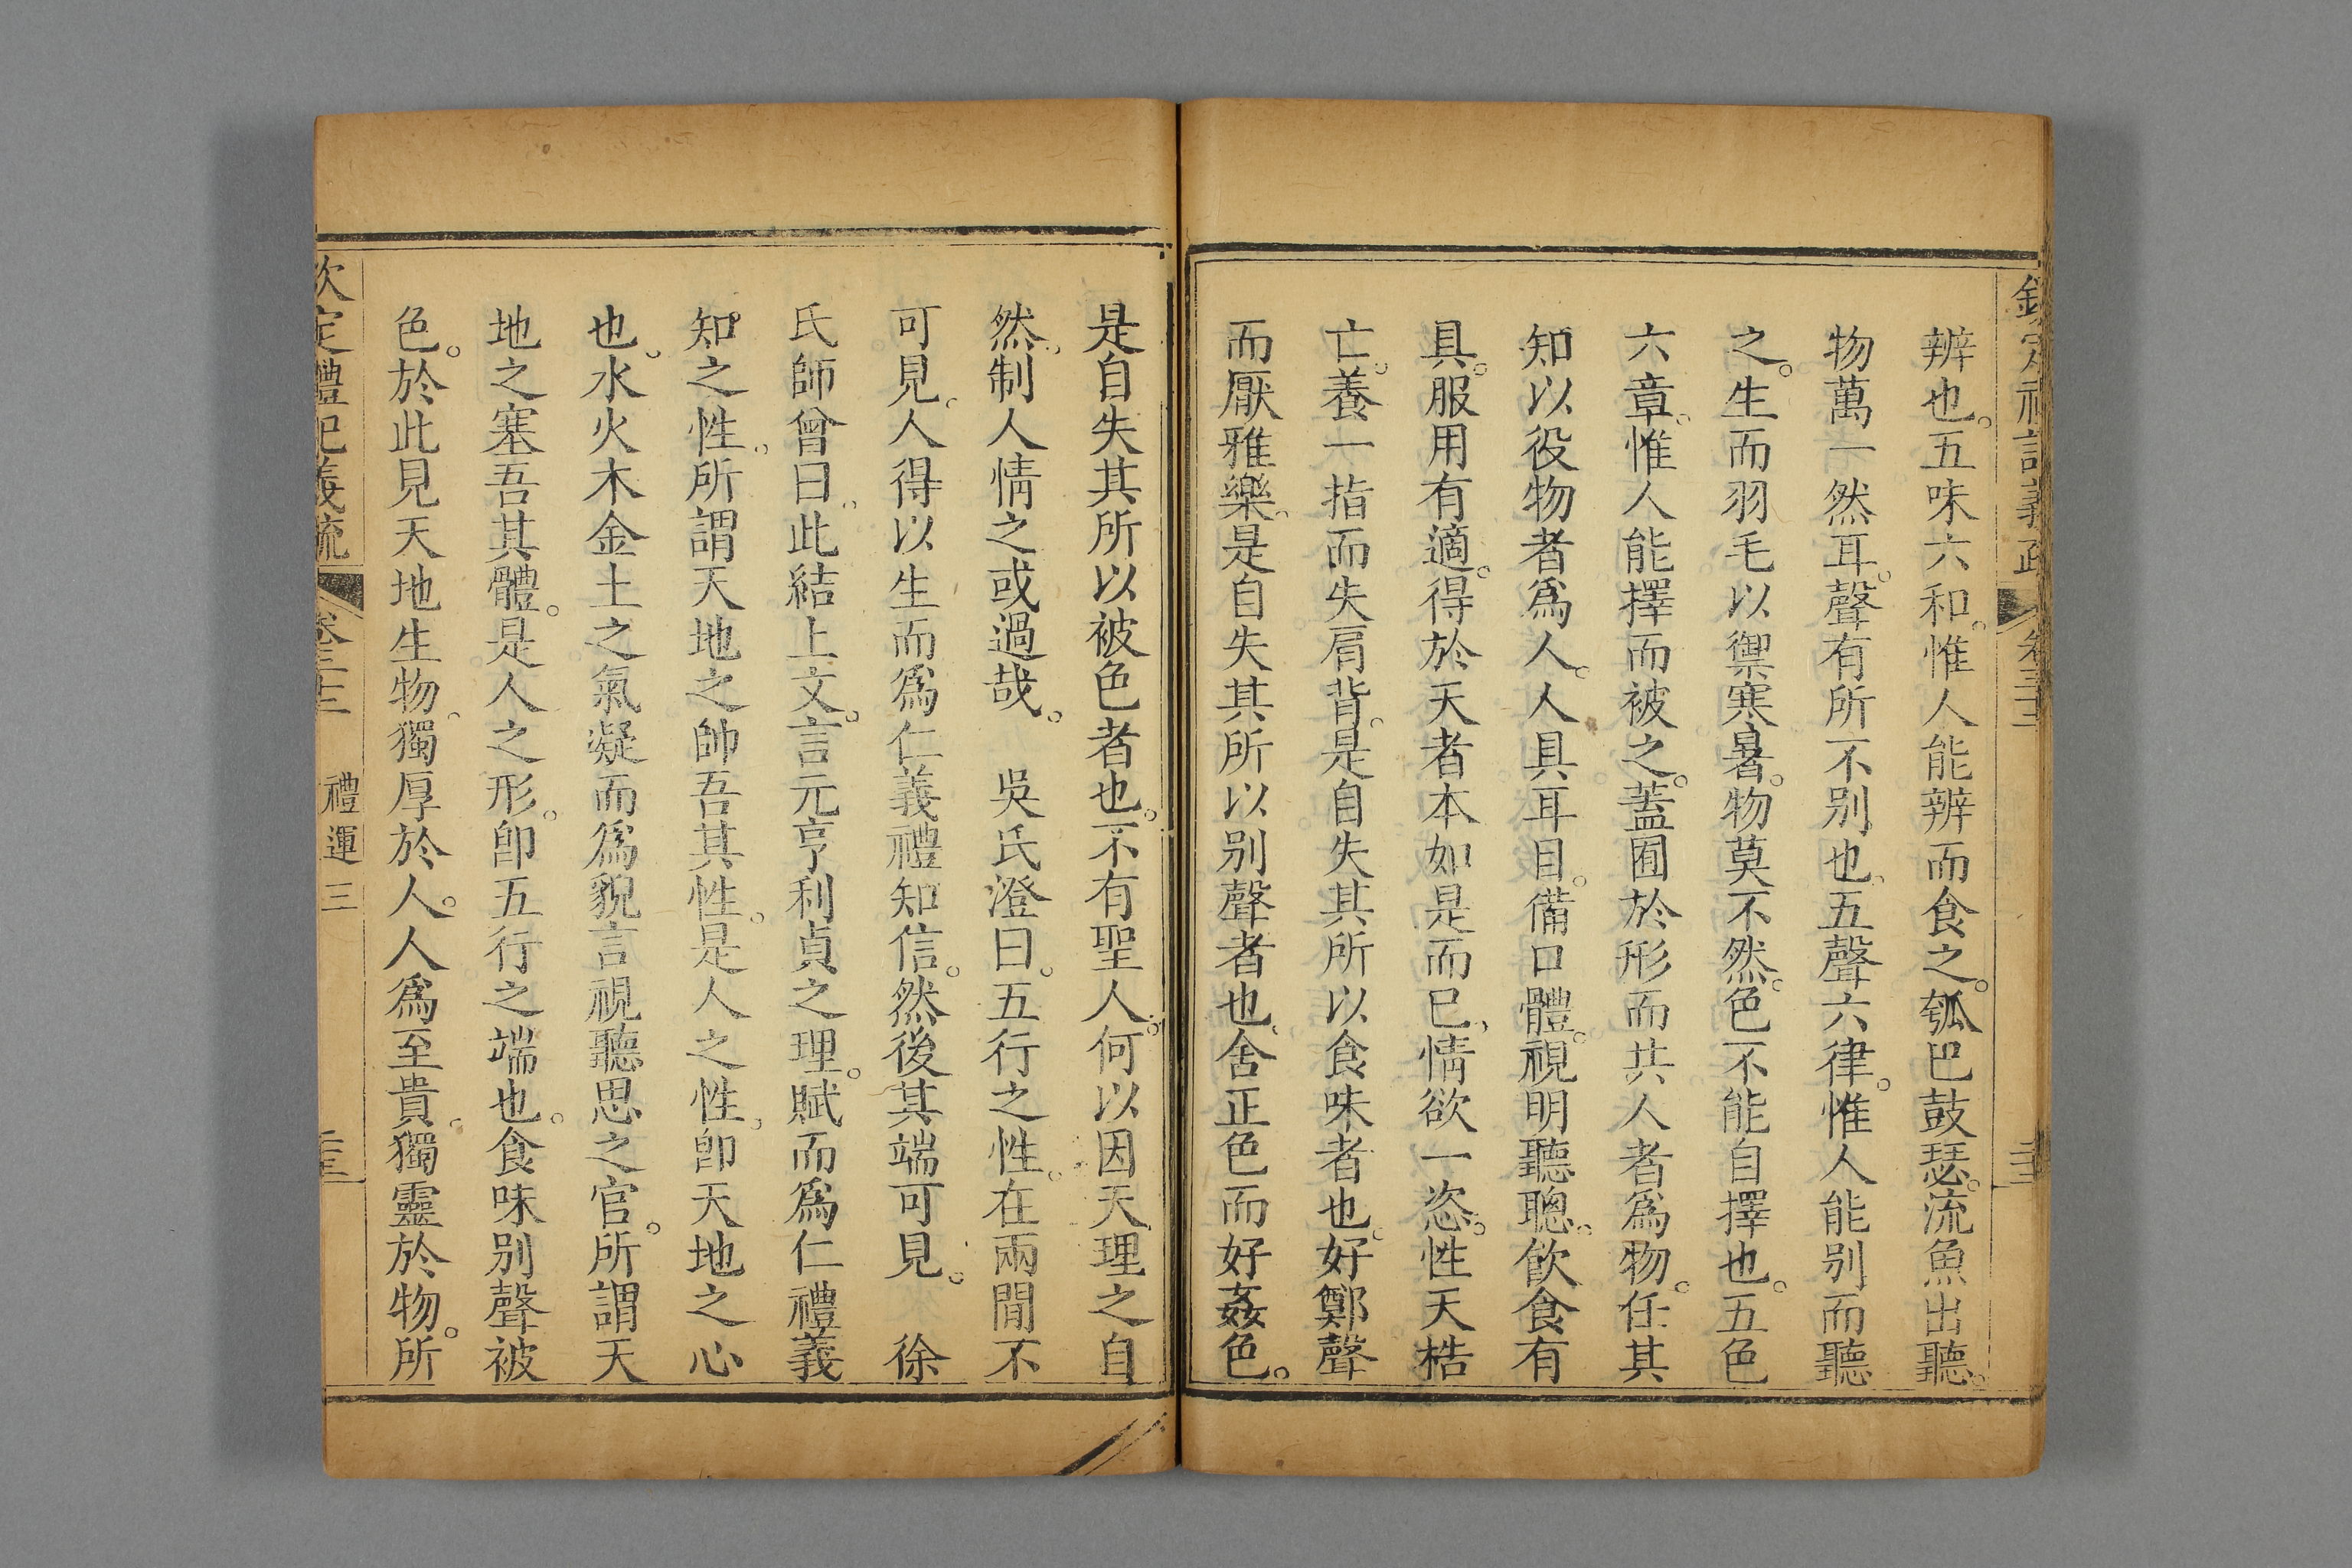 辨也。五味六和。惟人能辨而食之。瓠巴鼓瑟。流魚出聽。
物萬一然耳。聲有所不別也。五聲六律。惟人能別而聽
之。生而羽毛以禦寒暑。物莫不然。色不能自擇也。五色
六章。惟人能擇而被之。蓋囿於形而共人者爲物。任其
知以役物者爲人。人具耳目。備口體。視明聽聰。飮食有
具。服用有適。得於天者本如是而已。情欲一恣。性天梏
亡。養一指而失肩背。是自失其所以食味者也。好鄭聲
而厭雅樂。是自失其所以別聲者也。舍正色而好姦色。
是自失其所以被色者也。不有聖人。何以因天理之自
然。制人情之或過哉。　吳氏澄曰。五行之性。在兩間不
可見。人得以生而爲仁義禮知信。然後其端可見。　徐
氏師曾曰。此結上文。言元亨利貞之理。賦而爲仁禮義
知之性。所謂天地之帥吾其性。是人之性。卽天地之心
也。水火木金土之氣凝而爲貌言視聽思之官。所謂天
地之塞吾其體。是人之形。卽五行之端也。食味別聲被
色。於此見天地生物。獨厚於人。人爲至貴。獨靈於物。所
欽定禮記義疏
禮運三